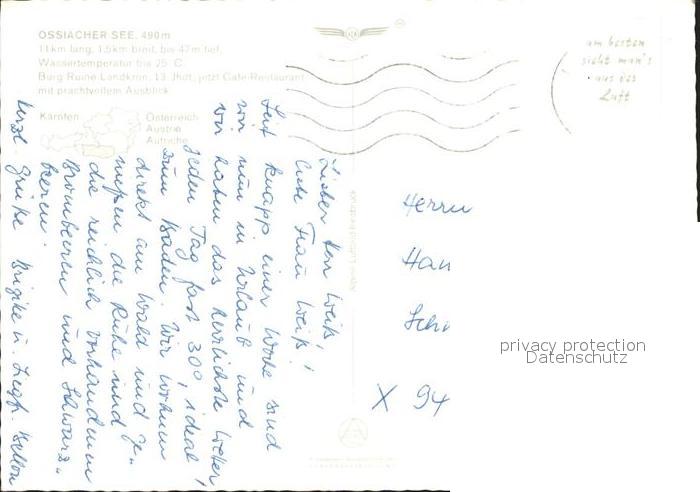 OSSIACHER SEE, 490 m
11 km lang, 1,5 km breit, bis 47 m tief,
Wassertemperatur bis 25° C.
Burg Ruine Landskron, 13. Jhdt., jetzt Café-Restaurant
mit prachtvollem Ausblick
Kärnten
Österreich
Austria
Autriche
am besten
sieht man's
aus der
Luft
Lieber Herr Weiß,
liebe Frau Weiß!
Seit knapp einer Woche sind
wir nun in Urlaub und
wir haben das herrlichste Wetter,
jeden Tag fast 30°, ideal
zum Baden. Wir wohnen
direkt am Wald und ge-
nießen die Ruhe und
die reichlich vorhandenen
Brombeeren und Schwarz-
beeren.
Herzl. Grüße Brigitte u.
Herrn
Han
Sch
X 94
privacy protection
Datenschutz